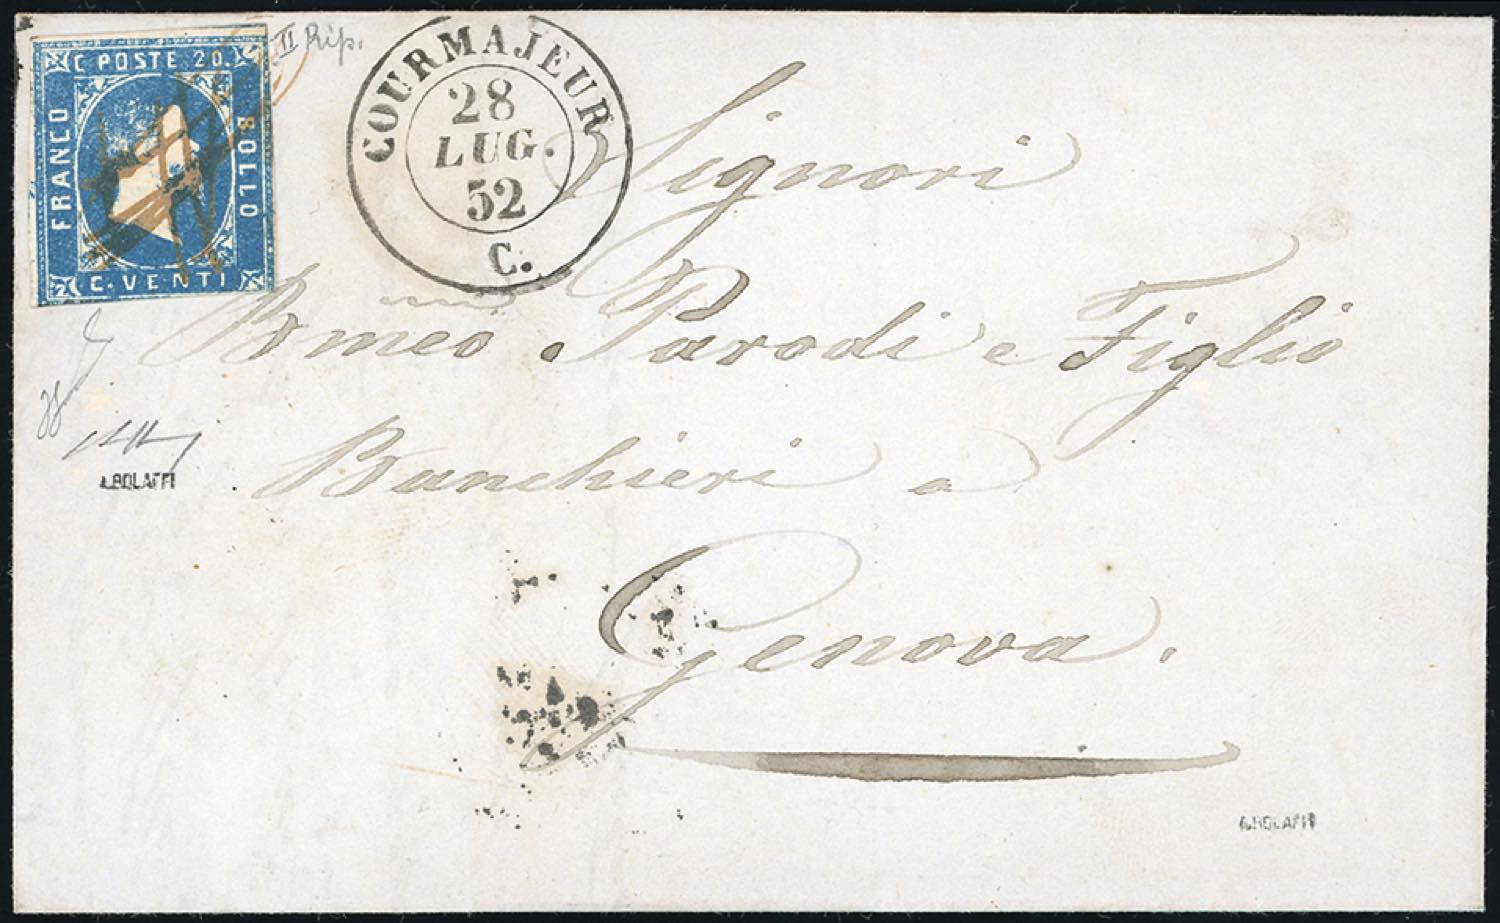 C POSTE 20.
FRANCO
BOLLO
C. VENTI
II Rip.
COURMAJEUR
28
LUG.
52
C.
Signori
Bmeo. Parodi e Figlio
Banchieri a
Genova.
A.BOLAFFI
A.BOLAFFI